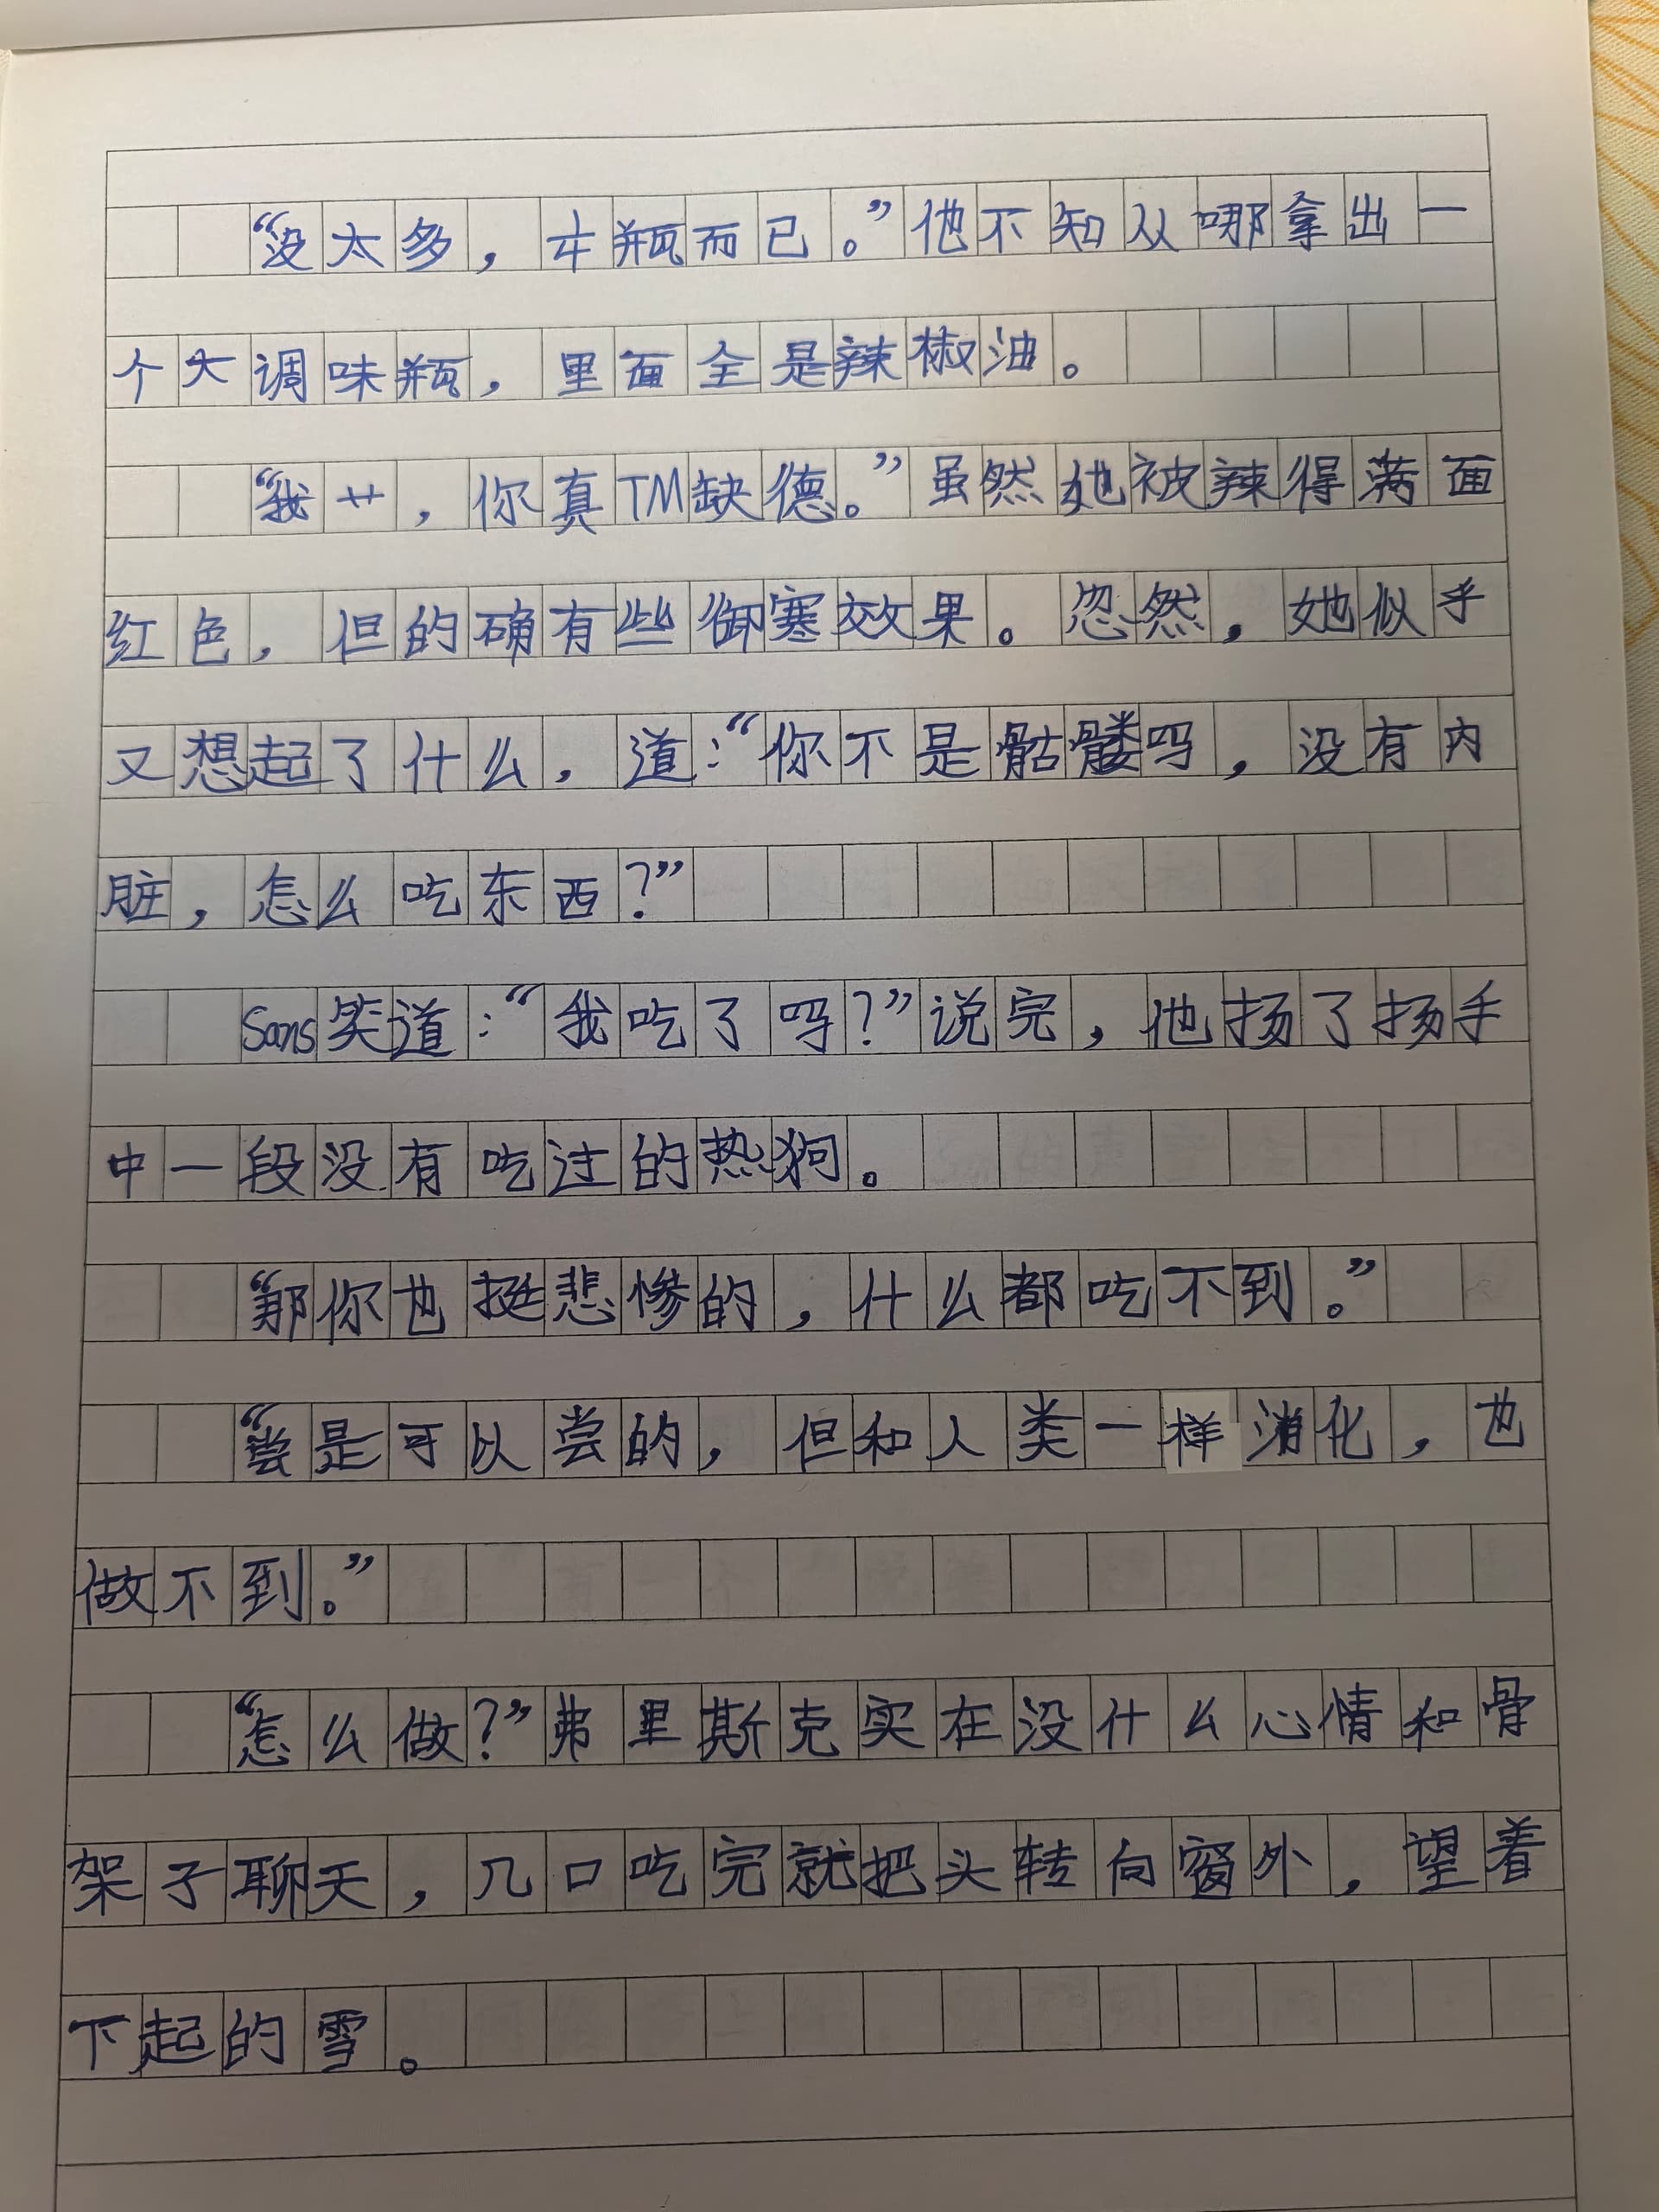 “没太多，半瓶而已。”他不知从哪拿出一
个大调味瓶，里面全是辣椒油。
“我艹，你真TM缺德。”虽然她被辣得满面
红色，但的确有些御寒效果。忽然，她似乎
又想起了什么，道：“你不是骷髅吗，没有内
脏，怎么吃东西？”
Sans笑道：“我吃了吗？”说完，他扬了扬手
中一段没有吃过的热狗。
“那你也挺悲惨的，什么都吃不到。”
“尝是可以尝的，但和人类一样消化，也
做不到。”
“怎么做？”弗里斯克实在没什么心情和骨
架子聊天，几口吃完就把头转向窗外，望着
下起的雪。